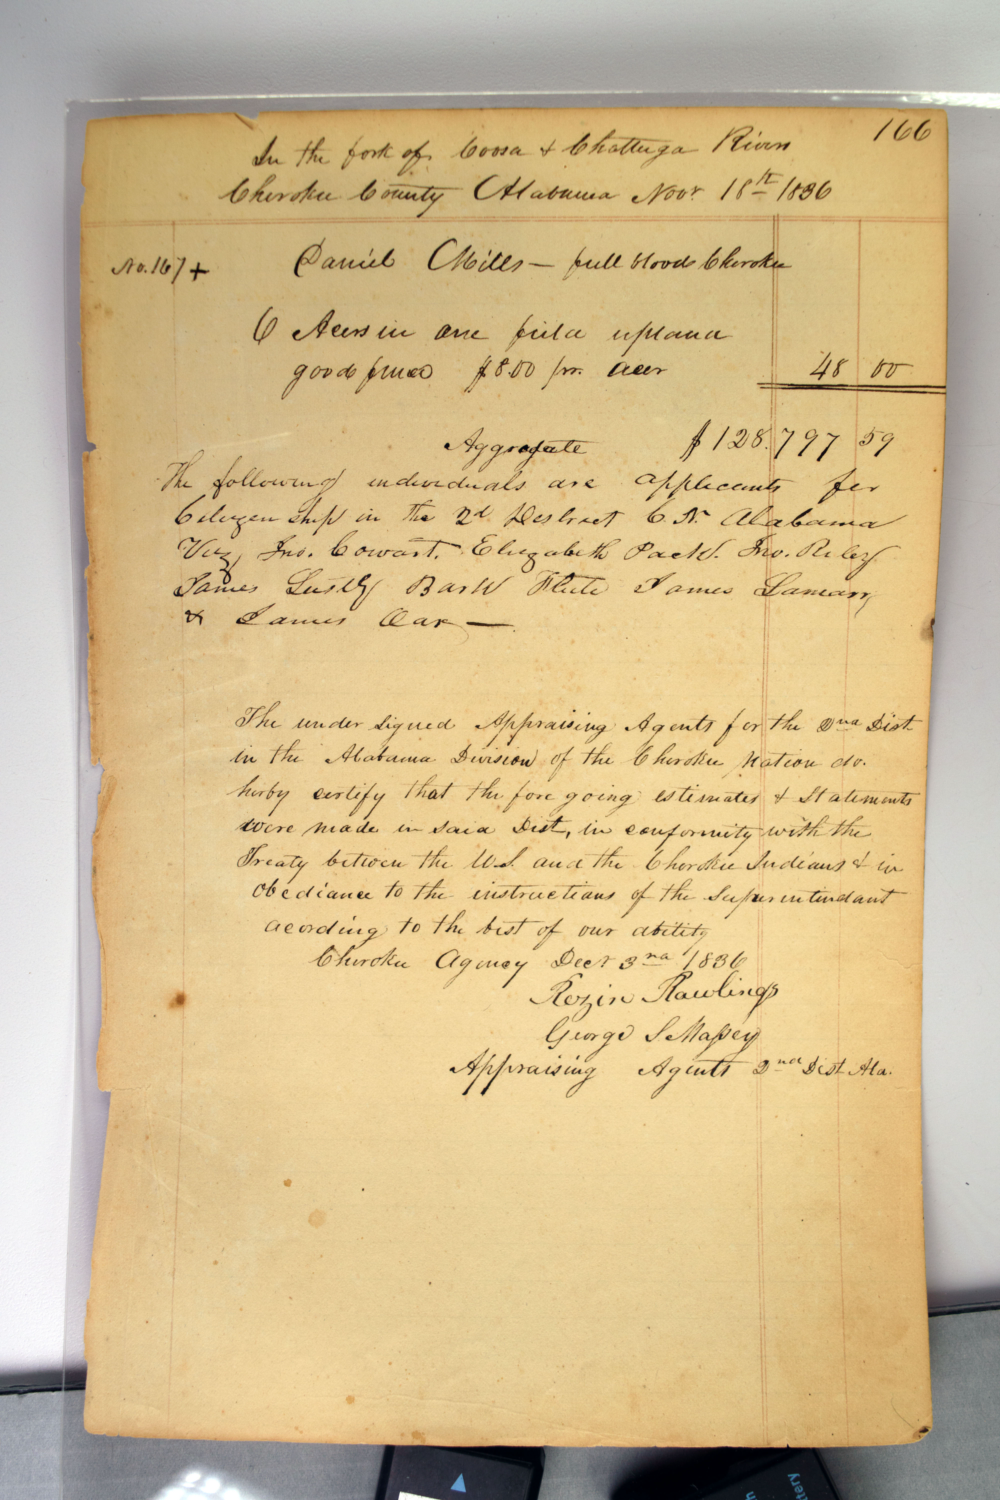 166
In the fork of Coosa & Chattuga Rivers
Cherokee County Alabama Novr 18th 1836
No. 167 + Daniel Mills — full blood Cherokee
6 Acers in one field upland
good fence $8.00 pr. acer 48 00
Aggregate $128.797 59
The following individuals are applicants for
Citizenship in the 2d District C. N. Alabama
Viz, Jno. Cowart. Elizabeth Pack. Jno. Riley
James Lusky Bark Flute James Lamarr,
& James Oar —
The under signed Appraising Agents for the 2nd Dist
in the Alabama Division of the Cherokee Nation do.
herby certify that the fore going estimates & Statements
were made in said Dist, in conformity with the
Treaty between the U.S. and the Cherokee Indians & in
obediance to the instructions of the Superintendant
acording to the best of our ability
Cherokee Agency Decr 3rd 1836
Rozin Rawlings
George S Massey
Appraising Agents 2nd Dist Ala.